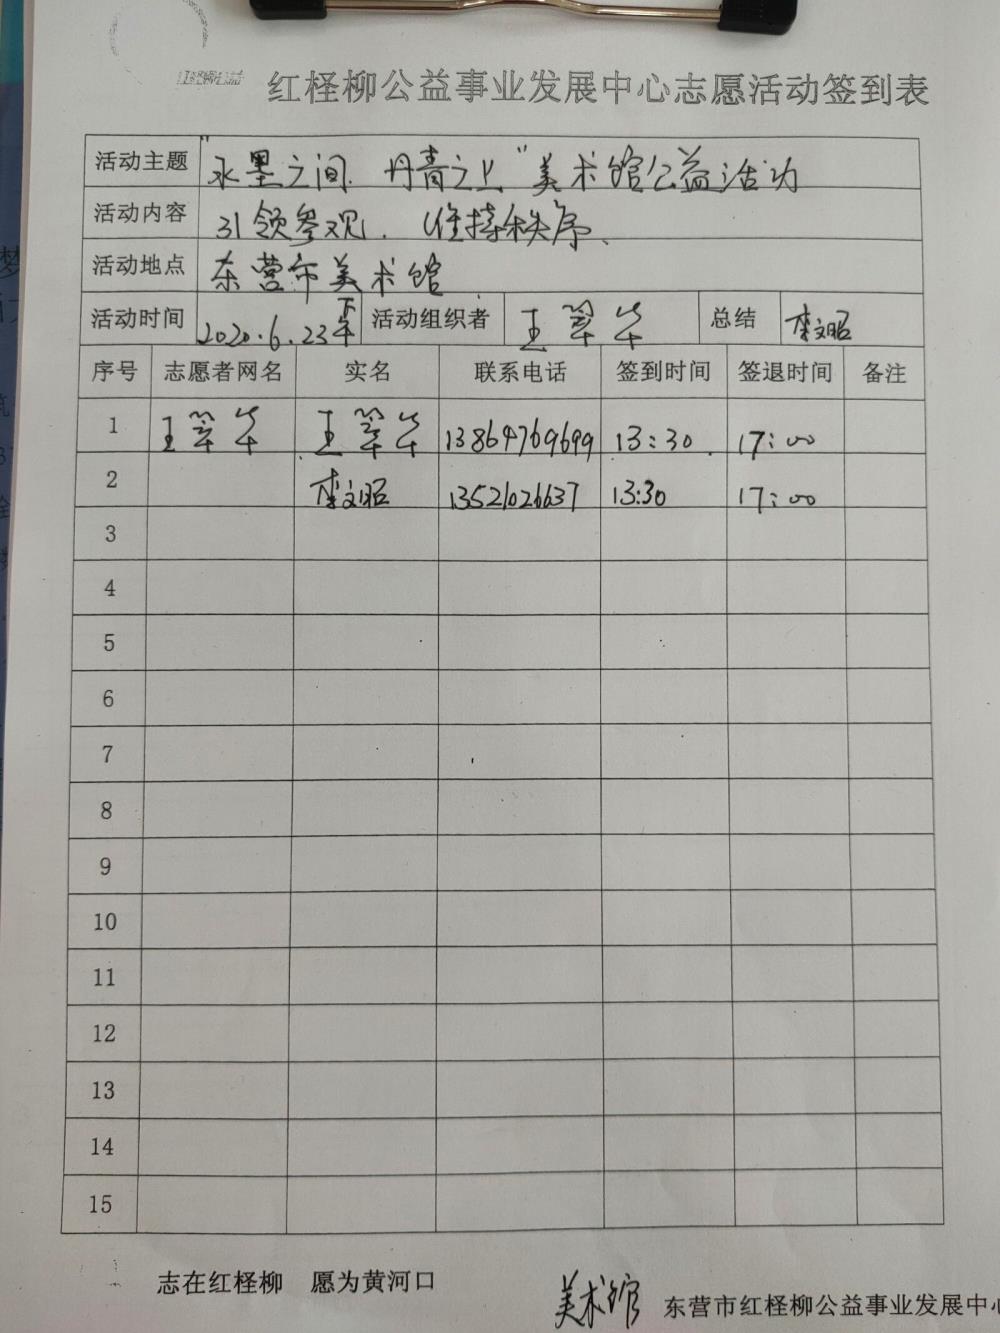 红柽柳公益
红柽柳公益事业发展中心志愿活动签到表
活动主题 "水墨之间、丹青之上"美术馆公益活动
活动内容 引领参观、维持秩序、
活动地点 东营市美术馆
活动时间 2020.6.23下午 活动组织者 王翠华 总结 李文昭
序号 志愿者网名 实名 联系电话 签到时间 签退时间 备注
1 王翠华 王翠华 13864769699 13:30 17:00
2 李文昭 13521026637 13:30 17:00
3
4
5
6
7
8
9
10
11
12
13
14
15
志在红柽柳 愿为黄河口
美术馆 东营市红柽柳公益事业发展中心